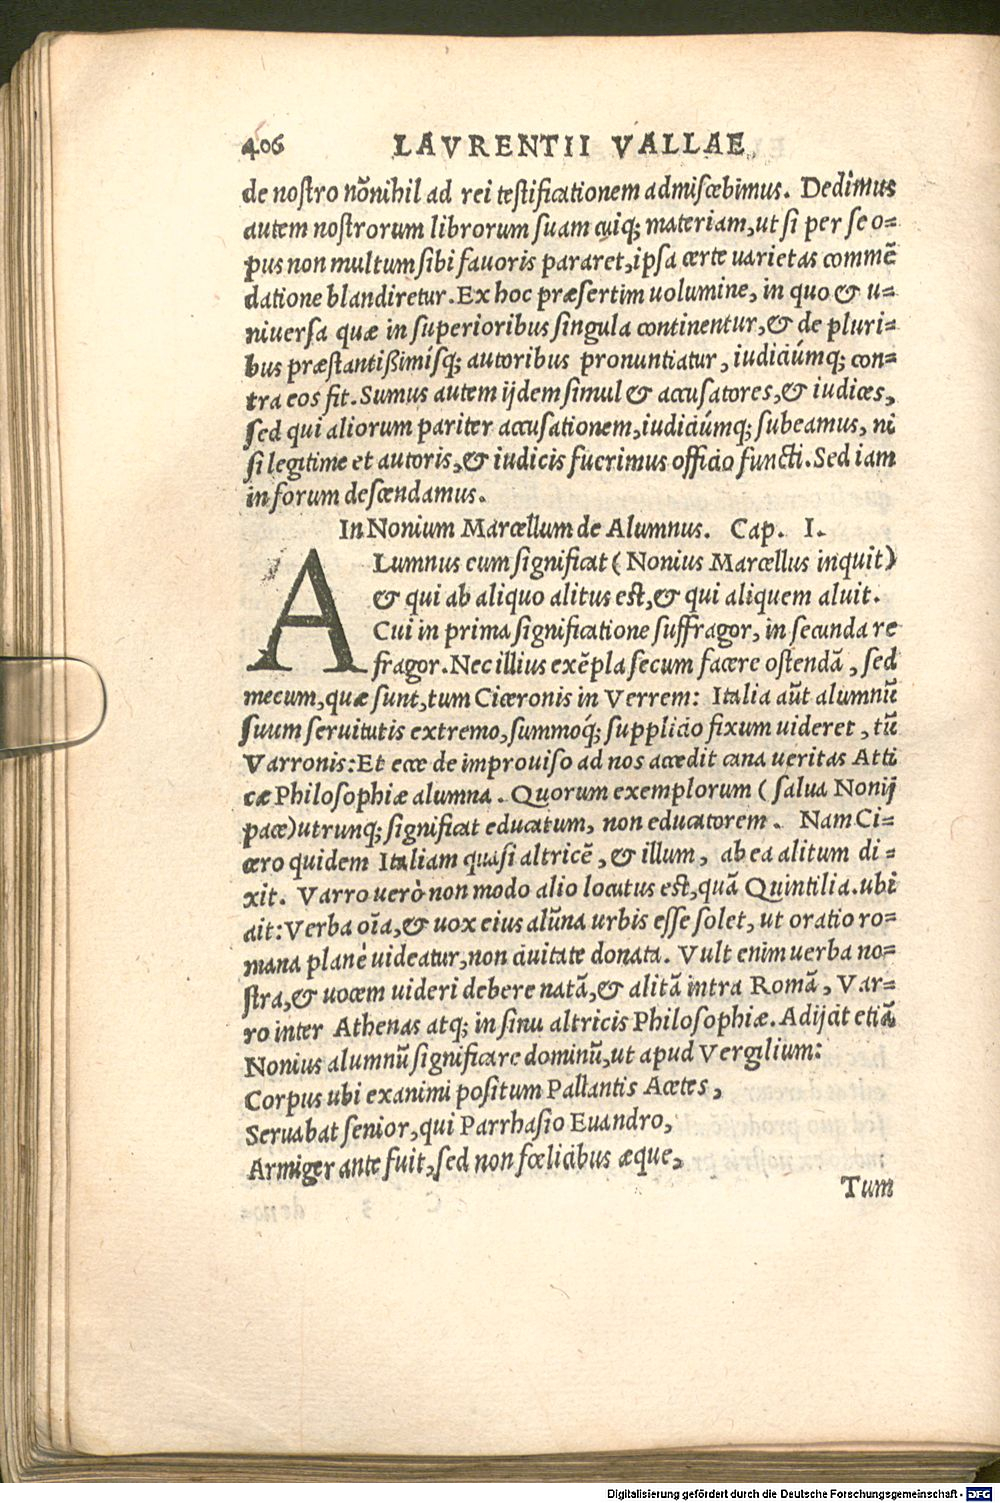 406 LAVRENTII VALLAE
de nostro nõnihil ad rei testificationem admiscebimus. Dedimus
autem nostrorum librorum suam cuiq; materiam, ut si per se o-
pus non multum sibi fauoris pararet, ipsa certe uarietas commẽ
datione blandiretur. Ex hoc præsertim uolumine, in quo & u-
niuersa quæ in superioribus singula continentur, & de pluri-
bus præstantißimísq; autoribus pronuntiatur, iudiciúmq; con-
tra eos fit. Sumus autem ijdem simul & accusatores, & iudices,
sed qui aliorum pariter accusationem, iudiciúmq; subeamus, ni
si legitime et autoris, & iudicis fuerimus officio functi. Sed iam
in forum descendamus.
In Nonium Marcellum de Alumnus. Cap. I.
ALumnus cum significat (Nonius Marcellus inquit)
& qui ab aliquo alitus est, & qui aliquem aluit.
Cui in prima significatione suffragor, in secunda re
fragor. Nec illius exẽpla secum facere ostendã, sed
mecum, quæ sunt, tum Ciceronis in Verrem: Italia aũt alumnũ
suum seruitutis extremo, summoq́; supplicio fixum uideret, tũ
Varronis: Et ecce de improuiso ad nos accedit cana ueritas Atti
cæ Philosophiæ alumna. Quorum exemplorum (salua Nonij
pace) utrunq; significat educatum, non educatorem. Nam Ci-
cero quidem Italiam quasi altricẽ, & illum, ab ea alitum di-
xit. Varro uerò non modo alio locutus est, quã Quintilia. ubi
ait: Verba oĩa, & uox eius alũna urbis esse solet, ut oratio ro-
mana planè uideatur, non ciuitate donata. Vult enim uerba no-
stra, & uocem uideri debere natã, & alitã intra Romã, Var-
ro inter Athenas atq; in sinu altricis Philosophiæ. Adijcit etiã
Nonius alumnũ significare dominũ, ut apud Vergilium:
Corpus ubi exanimi positum Pallantis Acetes,
Seruabat senior, qui Parrhasio Euandro,
Armiger ante fuit, sed non fœlicibus æque,
Tum
Digitalisierung gefördert durch die Deutsche Forschungsgemeinschaft - DFG